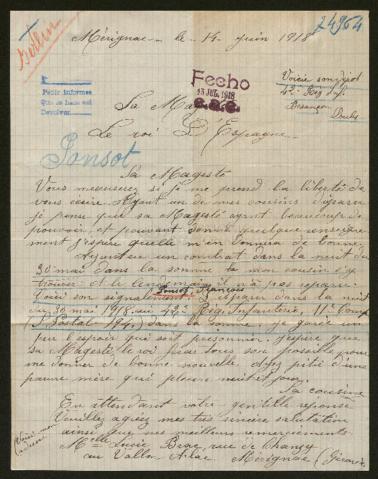 Berlin
24964
Mérignac le 14 juin 1918
Voici son dépôt
42e Reg Inf.
Besançon
Doubs
Pedir informes
Devolver
Fecho
13 JUL. 1918
Sa Ma
Le roi D'Espagne
Ponsot
Sa Magesté
Vous m'excuserez si je me prend la liberté de
vous écrire. Ayant un de mes cousins disparu
je pense que sa Magesté ayant beaucoup de
pouvoir et pouvant avoir quelque renseigne
ment j'espère quelle m'en donnera de bonne.
Ayant eu un combat dans la nuit du
30 mai dans la somme ou mon cousin s'y
trouver et le lendemain n'a pas reparu.
Ponsot François
Voici son signalement disparu dans la nuit
du 30 mai 1918, au 42e Reg. Infanterie, 11e Comp
S. Postal 194, dans la somme je garde un
peu l'espoir qui soit prisonnier. J'espère que
sa Magesté le roi fera tous son possible pour
me donner de bonne nouvelle ayez pitié d'une
pauvre mère qui pleure nuit et jour.
Sa cousine
En attendant votre gentille réponse
Veuillez agréez mes très sincère salutation
ainsi que mes meilleurs remerciements
Voici mon
adresse
Melle Lucie rue de Chanzy
au Vallon Arlac Mérignac (Gironde